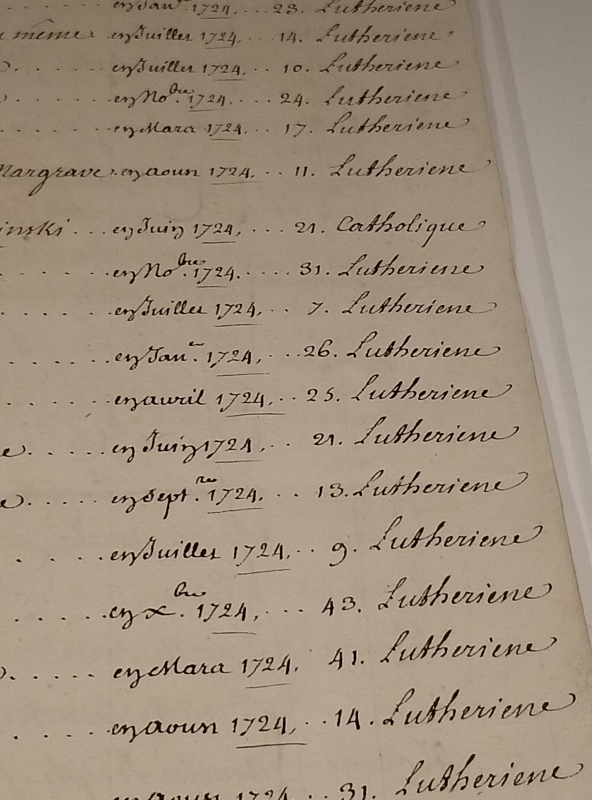 en Janer 1724, .. 23. Lutheriene
même. en Juillet 1724, ... 14. Lutheriene
..... en Juillet 1724, ... 10. Lutheriene
...... en Nobre. 1724. ... 24. Lutheriene
...... en Mars 1724. ... 17. Lutheriene
Margrave. en aoust 1724, .. 11. Lutheriene
inski .... en Juin 1724, .. 21. Catholique
..... en Nobre. 1724. .... 31. Lutheriene
...... en Juillet 1724, .. 7. Lutheriene
..... en Janer. 1724, ...26. Lutheriene
...... en avril 1724, .. 25. Lutheriene
e..... en Juin 1724 .. 21. Lutheriene
e..... en Septre. 1724, .. 13. Lutheriene
. . . en Juillet 1724, .. 9. Lutheriene
..... en xbre. 1724, ... 43. Lutheriene
..... en Mars 1724, 41. Lutheriene
..... en aoust 1724, .. 14. Lutheriene
en aoust 1724 .. 31. Lutheriene